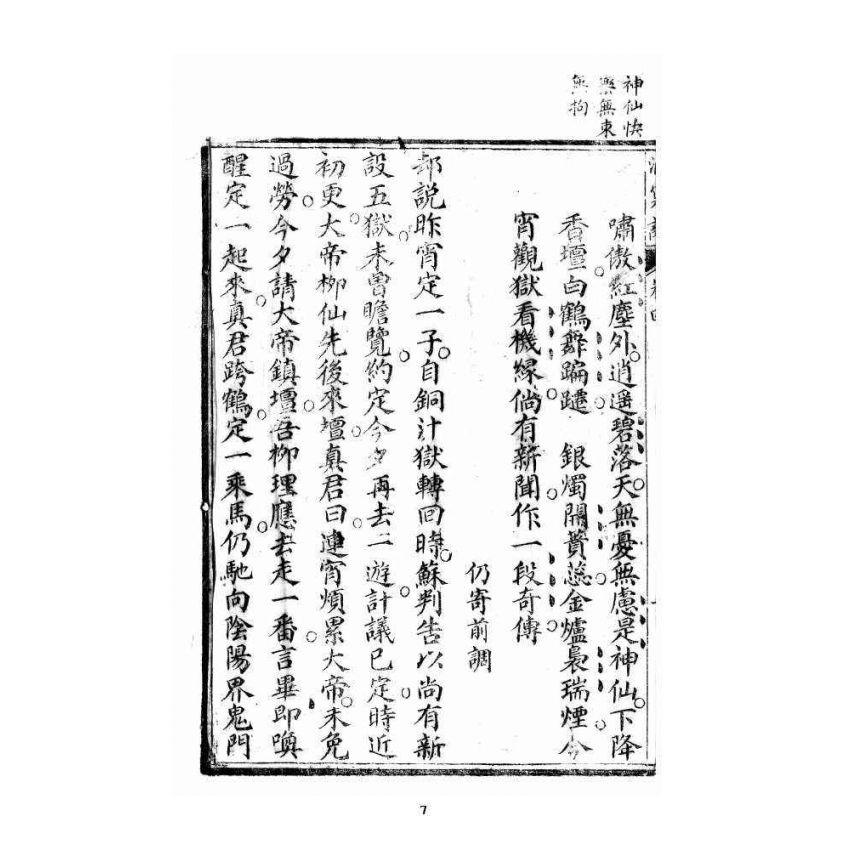 神仙快
樂無束
無拘
卷四
嘯傲紅塵外。逍遥碧落天。無憂無慮是神仙。下降
香壇。白鶴舞蹁躚。　銀燭開蕡蕊。金爐裊瑞煙。今
宵觀獄看機緣。倘有新聞。作一段奇傳。
仍寄前調
却説昨宵定一子。自銅汁獄轉回時。蘇判告以尚有新
設五獄。未曾瞻覽。約定今夕再去一遊。計議已定。時近
初更。大帝柳仙先後來壇。真君曰。連宵煩累大帝。未免
過勞。今夕請大帝鎮壇。吾柳理應去走一番。言畢。即喚
醒定一起來。真君跨鶴。定一乘馬。仍馳向陰陽界鬼門
7